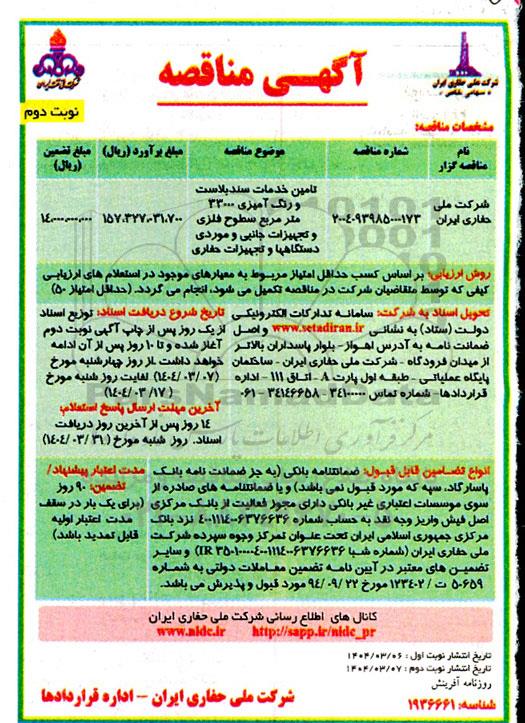 آگهی مناقصه
شرکت ملی حفاری ایران
« سهامی خاص »
نوبت دوم
مشخصات مناقصه:
نام مناقصه گزار
شماره مناقصه
موضوع مناقصه
مبلغ برآورد (ریال)
مبلغ تضمین (ریال)
شرکت ملی حفاری ایران
۲۰۰۴۰۹۳۹۸۵۰۰۰۱۷۳
تامین خدمات سندبلاست
و رنگ آمیزی ۳۳۰۰۰
متر مربع سطوح فلزی
و تجهیزات جانبی و موردی
دستگاهها و تجهیزات حفاری
۱۵۷.۳۲۷.۰۳۱.۷۰۰
۱۴.۰۰۰.۰۰۰.۰۰۰
روش ارزیابی: بر اساس کسب حداقل امتیاز مربوط به معیارهای موجود در استعلام های ارزیابی
کیفی که توسط متقاضیان شرکت در مناقصه تکمیل می شود، انجام می گردد. (حداقل امتیاز ۵۰)
تحویل اسناد به شرکت: سامانه تدارکات الکترونیکی
دولت (ستاد) به نشانی www.setadiran.ir و اصل
ضمانت نامه به آدرس اهواز- بلوار پاسداران بالاتر
از میدان فرودگاه - شرکت ملی حفاری ایران - ساختمان
پایگاه عملیاتی - طبقه اول پارت B - اتاق ۱۱۱ - اداره
قراردادها- شماره تماس ۳۴۱۰۰۰۰۰ - ۳۴۱۴۶۶۵۸ - ۰۶۱
تاریخ شروع دریافت اسناد: توزیع اسناد
از یک روز پس از چاپ آگهی نوبت دوم
آغاز شده و تا ۱۰ روز پس از آن ادامه
خواهد داشت .از روز چهارشنبه مورخ
(۱۴۰۴/۰۳/۰۷) لغایت روز شنبه مورخ
(۱۴۰۴/۰۳/۱۷)
آخرین مهلت ارسال پاسخ استعلام:
۱۴ روز پس از آخرین روز دریافت
اسناد. روز شنبه مورخ (۱۴۰۴/۰۳/۳۱)
انواع تضامین قابل قبول: ضمانتنامه بانکی (به جز ضمانت نامه بانک
پاسارگاد، سپه که مورد قبول نمی باشد) و یا ضمانتنامه های صادره از
سوی موسسات اعتباری غیر بانکی دارای مجوز فعالیت از بانک مرکزی
اصل فیش واریز وجه نقد به حساب شماره ۴۰۰۱۱۱۴۰۰۶۳۷۶۶۳۶ نزد بانک
مرکزی جمهوری اسلامی ایران تحت عنوان تمرکز وجوه سپرده شرکت
ملی حفاری ایران (شماره شبا
و سایر
تضمین های معتبر در آیین نامه تضمین معاملات دولتی به شماره
۵۰۶۵۹ ت / ۱۲۳۴۰۲ مورخ ۹۴/۰۹/۲۲ مورد قبول و پذیرش می باشد.
مدت اعتبار پیشنهاد/
تضمین: ۹۰ روز
(برای یک بار در سقف
مدت اعتبار اولیه
قابل تمدید باشد)
کانال های اطلاع رسانی شرکت ملی حفاری ایران
www.nidc.ir http://sapp.ir/nidc_pr
تاریخ انتشار نوبت اول : ۱۴۰۴/۰۳/۰۶
تاریخ انتشار نوبت دوم : ۱۴۰۴/۰۳/۰۷
روزنامه آفرینش
شناسه: ۱۹۳۶۶۶۱
شرکت ملی حفاری ایران – اداره قراردادها